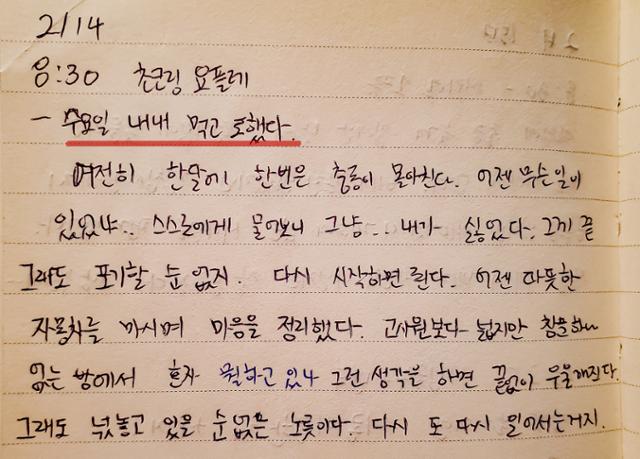 2/14
8:30 초코링 요플레
- 수요일 내내 먹고 토했다.
여전히 한달에 한번은 충동이 몰아친다. 어젠 무슨일이
있었냐.. 스스로에게 물어보니 그냥... 내가 싫었다. 그게 끝
그래도 포기할 순 없지. 다시 시작하면 된다. 어젠 따뜻한
자몽차를 마시며 마음을 정리했다. 고시원보다 넓지만 창문하나
없는 방에서 혼자 뭐하고 있나 그런 생각을 하면 끝없이 우울해진다.
그래도 넋놓고 있을 순 없는 노릇이다. 다시 또 다시 일어서는거지.